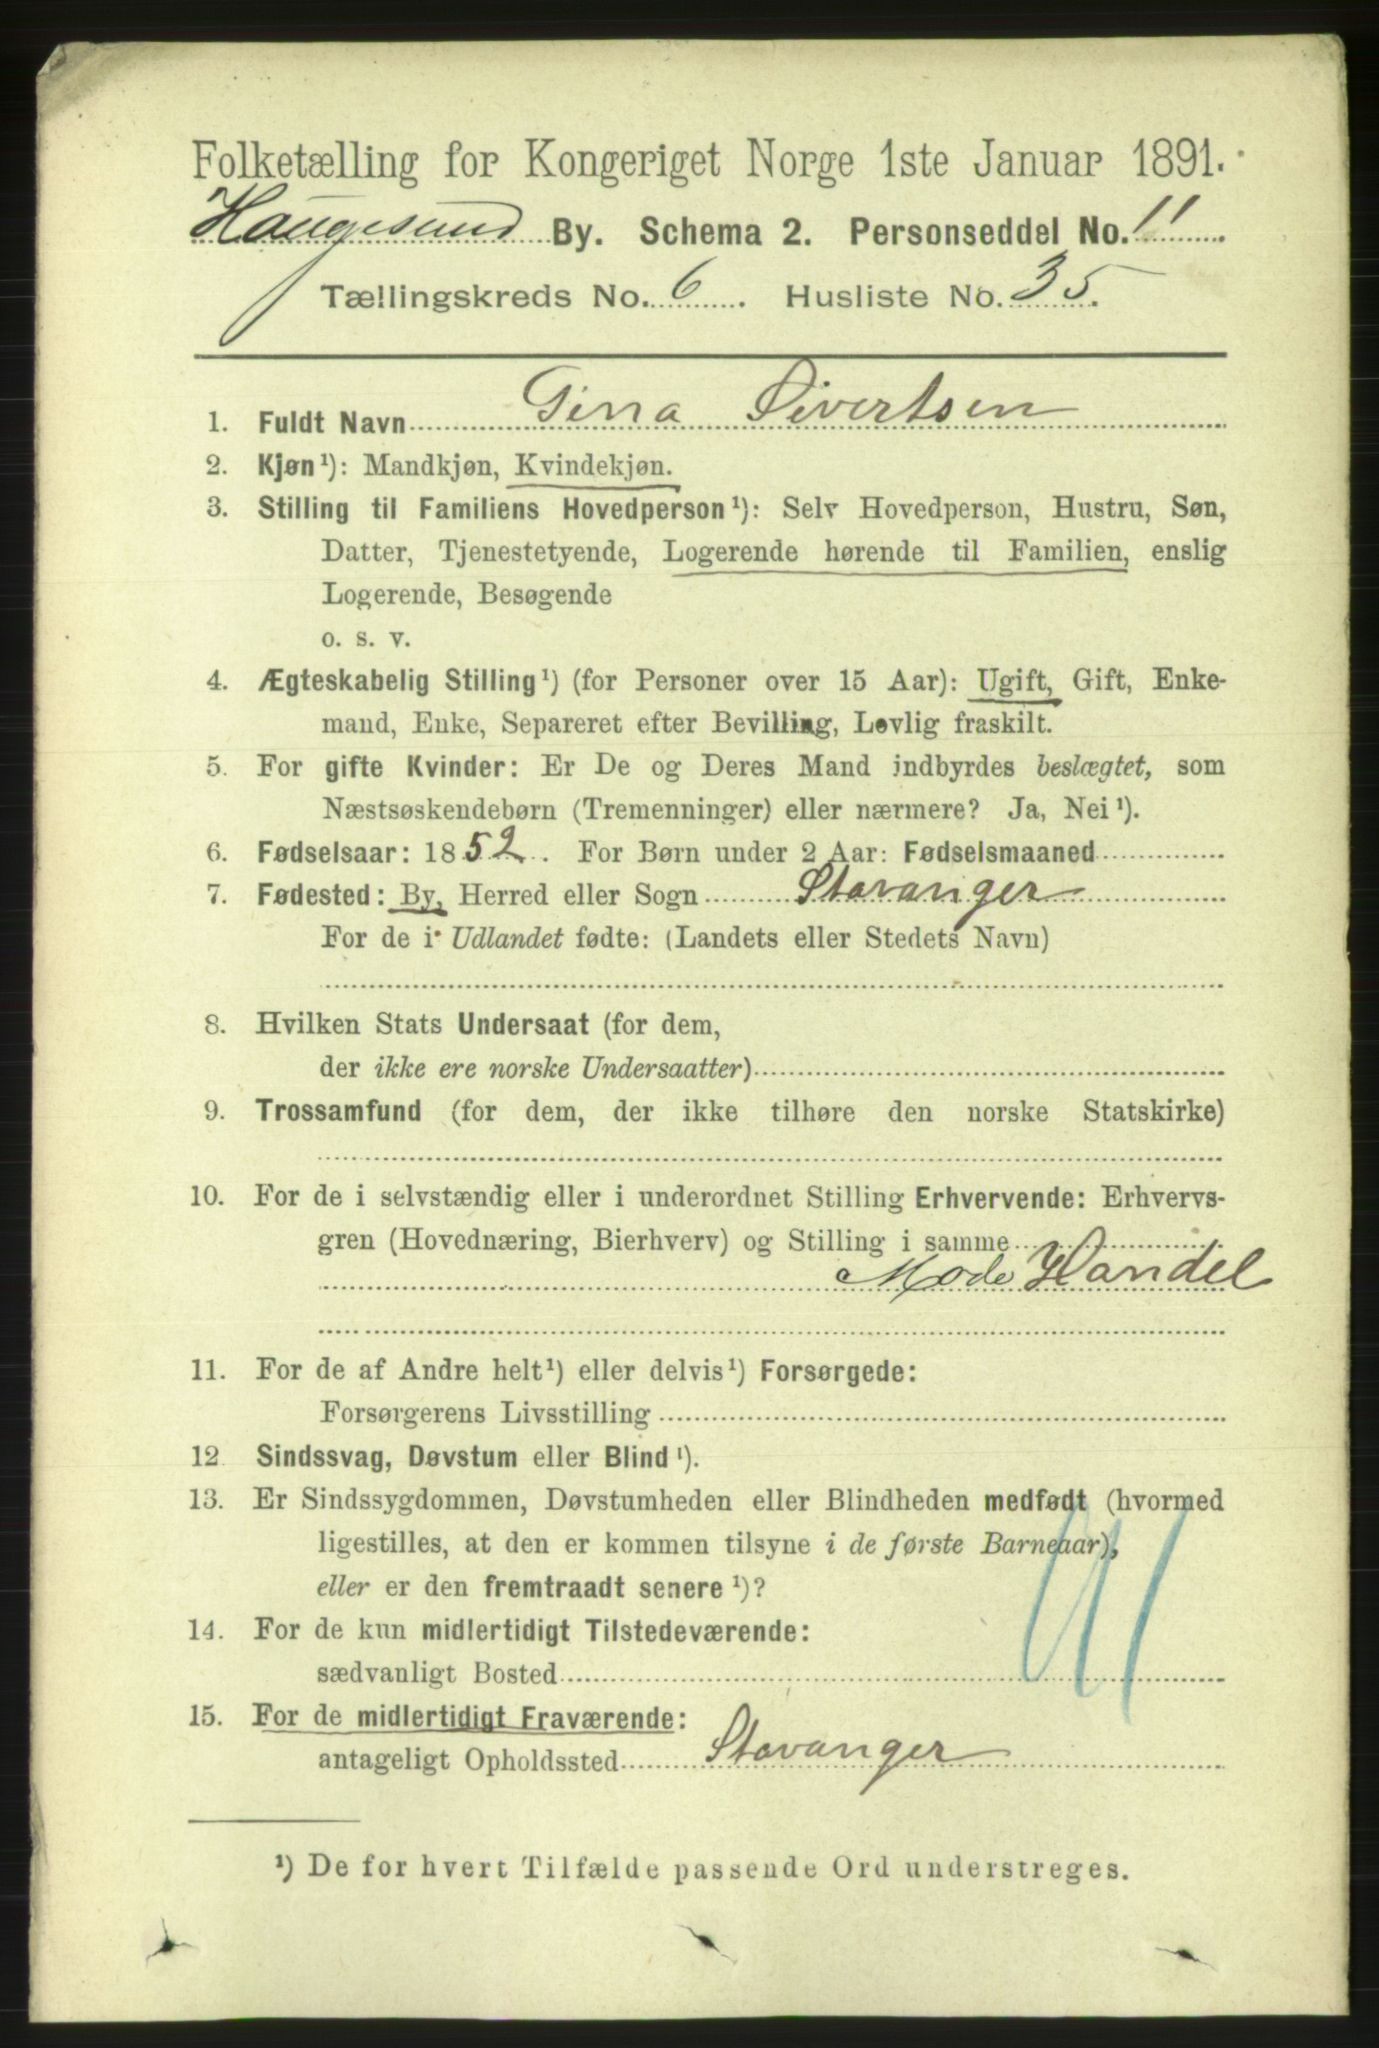 Folketælling for Kongeriget Norge 1ste Januar 1891.
Haugesund By. Schema 2. Personseddel No. 11
Tællingskreds No. 6. Husliste No. 35.
1. Fuldt Navn Gina Sivertsen
2. Kjøn¹): Mandkjøn, Kvindekjøn.
3. Stilling til Familiens Hovedperson¹): Selv Hovedperson, Hustru, Søn,
Datter, Tjenestetyende, Logerende hørende til Familien, enslig
Logerende, Besøgende
o. s. v.
4. Ægteskabelig Stilling¹) (for Personer over 15 Aar): Ugift, Gift, Enke-
mand, Enke, Separeret efter Bevilling, Lovlig fraskilt.
5. For gifte Kvinder: Er De og Deres Mand indbyrdes beslægtet, som
Næstsøskendebørn (Tremenninger) eller nærmere? Ja, Nei¹).
6. Fødselsaar: 1852. For Børn under 2 Aar: Fødselsmaaned
7. Fødested: By, Herred eller Sogn Stavanger
For de i Udlandet fødte: (Landets eller Stedets Navn)
8. Hvilken Stats Undersaat (for dem,
der ikke ere norske Undersaatter)
9. Trossamfund (for dem, der ikke tilhøre den norske Statskirke)
10. For de i selvstændig eller i underordnet Stilling Erhvervende: Erhvervs-
gren (Hovednæring, Bierhverv) og Stilling i samme
Mode Handel
11. For de af Andre helt¹) eller delvis¹) Forsørgede:
Forsørgerens Livsstilling
12 Sindssvag, Døvstum eller Blind¹).
13. Er Sindssygdommen, Døvstumheden eller Blindheden medfødt (hvormed
ligestilles, at den er kommen tilsyne i de første Barneaar),
eller er den fremtraadt senere¹)?
14. For de kun midlertidigt Tilstedeværende:
sædvanligt Bosted
15. For de midlertidigt Fraværende:
antageligt Opholdssted Stavanger
¹) De for hvert Tilfælde passende Ord understreges.